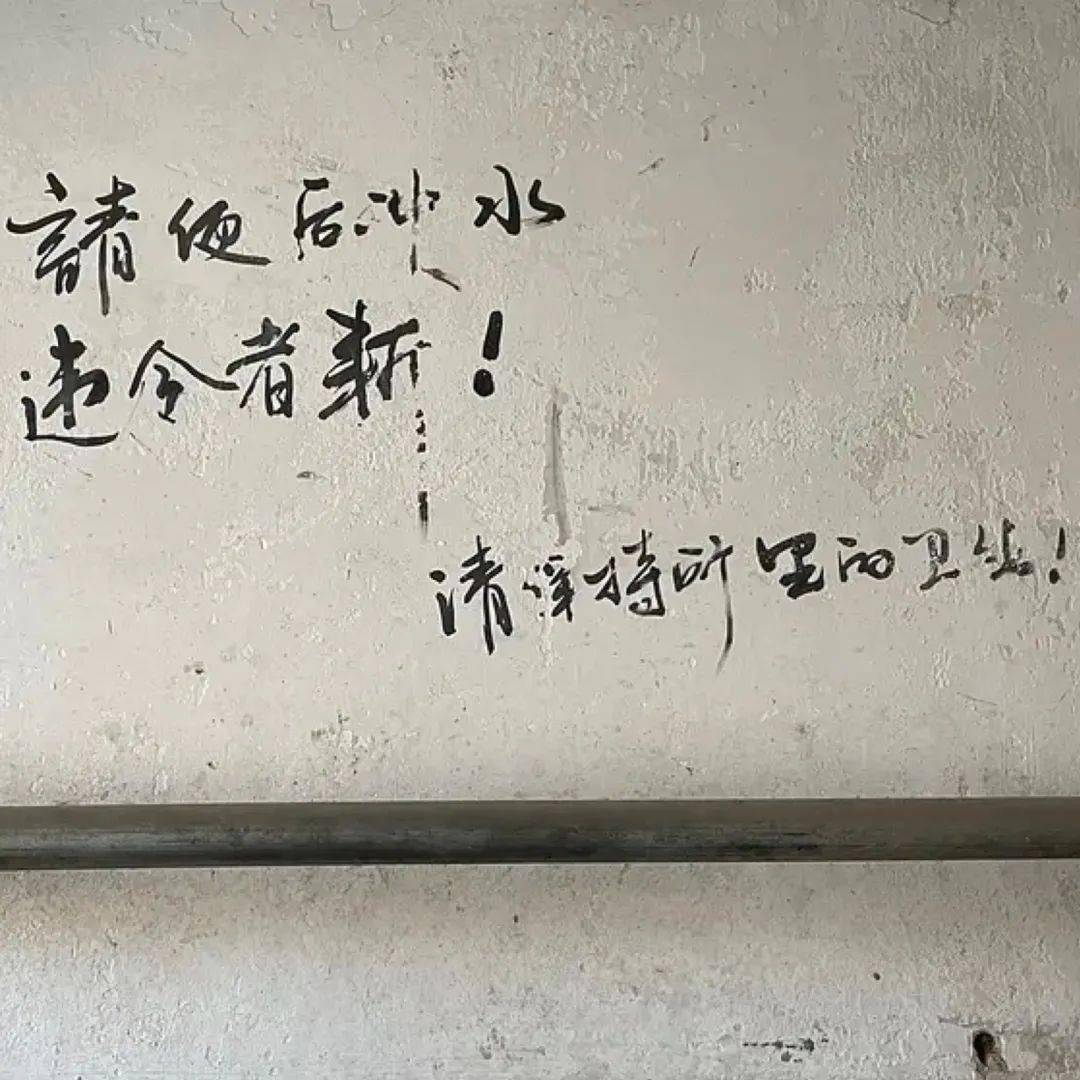 請便后冲水
违令者斬！
请保持所里的卫生！